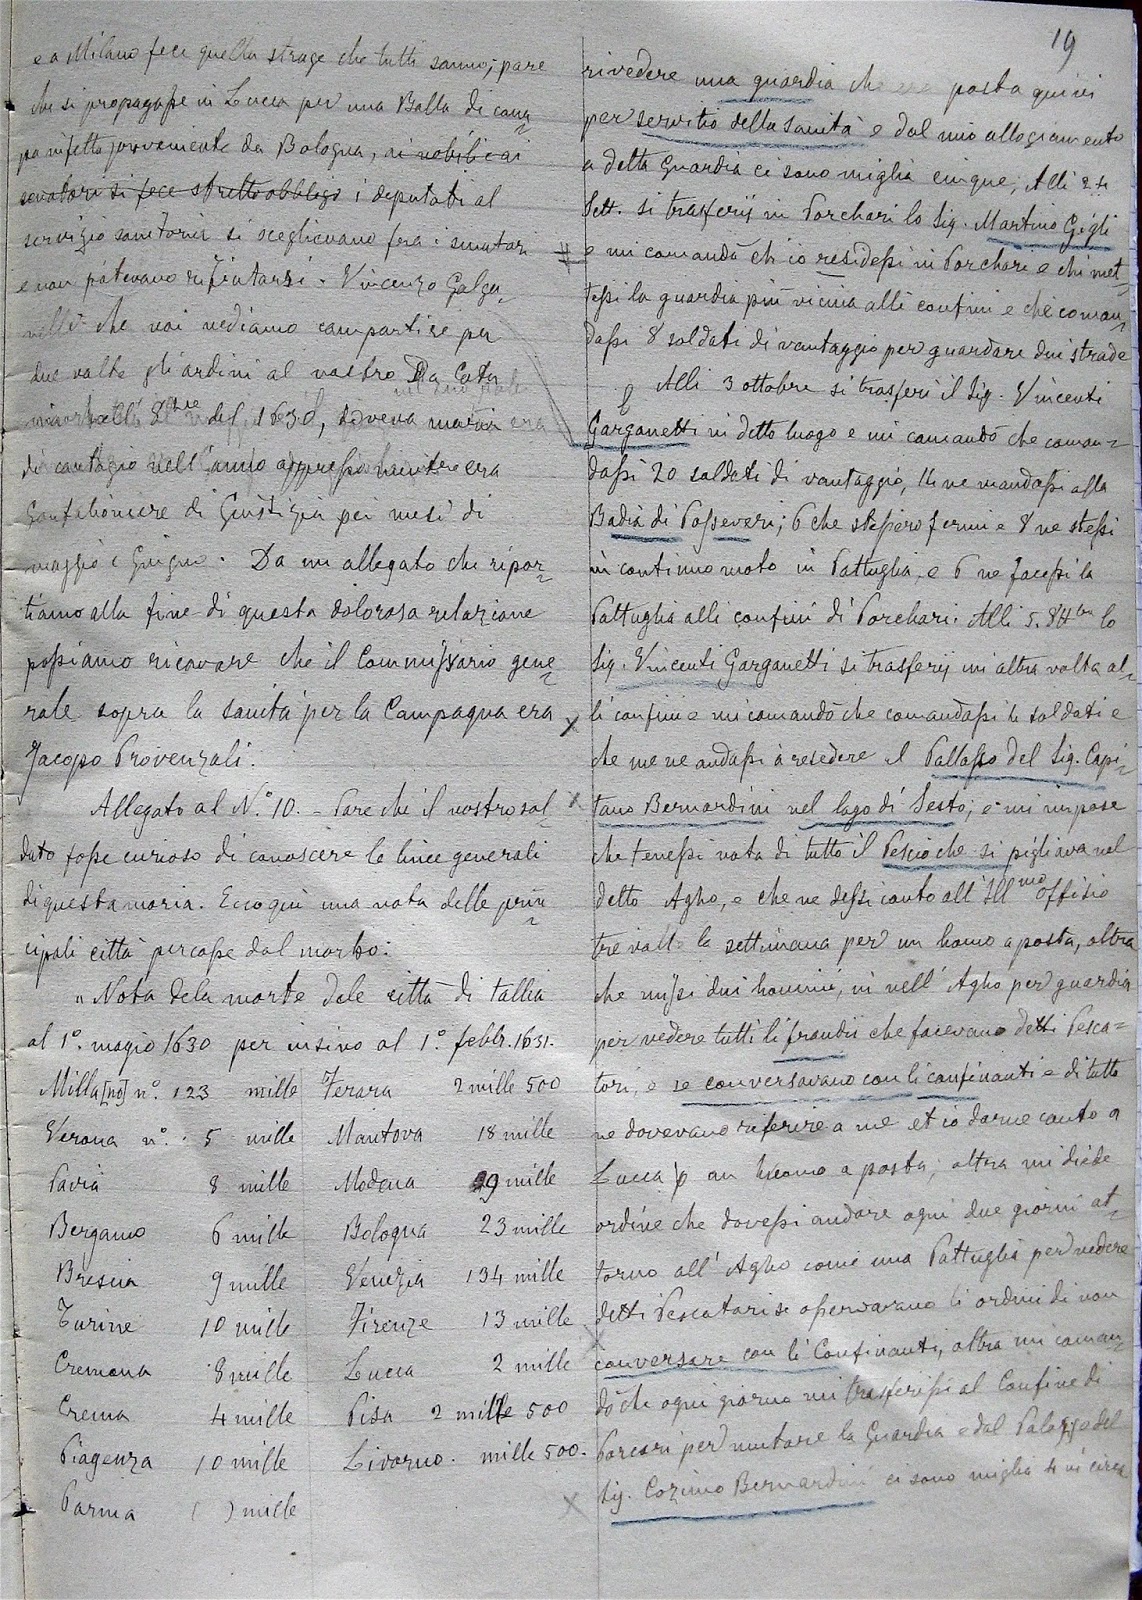 19
e a Milano fece quella strage che tutti sanno; pare
che si propagasse in Lucca per una Balla di cana-
pa infetta proveniente da Bologna, ai nobili e ai
senatori si fece stretto obbligo i deputati al
servizio sanitario si sceglievano fra i senatori
e non potevano rifiutarsi. Vincenzo Galga-
netti che noi vediamo compartire per
due volte gli ordini al nostro Da Cate
del 1630, doveva morire
di contagio nell'anno appresso era
Gonfaloniere di Giustizia pei mesi di
maggio e Giugno. Da un allegato che ripor-
tiamo alla fine di questa dolorosa relazione
possiamo ricavare che il Commissario gene-
rale sopra la sanità per la Campagna era
Jacopo Provenzali.
Allegato al N.° 10. - Pare che il nostro sol-
dato fosse curioso di conoscere le linee generali
di questa moria. Ecco qui una nota delle prin-
cipali città percosse dal morbo:
"Nota dela morte dele città di tallia
al 1°. magio 1630 per insino al 1°. febbr. 1631.
Milla[no] n°. 123 mille Ferara 2 mille 500
Verona n°. 5 mille Mantova 18 mille
Pavia 8 mille Modena 9 mille
Bergamo 6 mille Bologna 23 mille
Brescia 9 mille Venezia 134 mille
Turine 10 mille Firenze 13 mille
Cremona 8 mille Lucca 2 mille
Crema 4 mille Pisa 2 mille 500
Piagenza 10 mille Livorno. mille 500.
Parma ( ) mille
rivedere una guardia che era posta quivi
per servitio della sanità e dal mio allogiamento
a detta Guardia ci sono miglia cinque; Alli 24
Sett. si trasferij in Porchari lo Sig. Martino Gigli
e mi comandò ch'io residessi in Porchari e chi met-
tessi la guardia più vicina alli confini e che coman-
dassi 8 soldati di vantaggio per guardare dui strade
Alli 3 ottobre si trasferì il Sig. Vincenti
Garganetti in detto luogo e mi comandò che coman-
dassi 20 soldati di vantaggio, 14 ne mandassi alla
Badia di Posseveri; 6 che stessero fermi e 8 ne stessi
in continuo moto in Pattuglia, e 6 ne facessi la
Pattuglia alli confini di Porchari. Alli 5. 8bre lo
Sig. Vincenti Garganetti si trasferij un altra volta al-
li confini e mi comandò che comandassi soldati e
che me ne andassi à resedere al Pallasso del Sig. Capi-
tano Bernardini nel lago di Sesto; e mi impose
che tenessi nota di tutto il Pescio che si pigliava nel
detto Agho, e che ne dessi conto all'Ill^mo offisio
tre volte la settimana per un homo a posta, oltra
che missi dui homini, in nell'Agho per guardia
per vedere tutti li fraudii che facevano detti Pesca-
tori, e se conversavano con li confinanti e di tutto
ne dovevano riferire a me et io darne conto a
Lucca p un huomo a posta; oltra mi diede
ordine che dovessi andare ogni due giorni at-
torno all'Agho come una Pattuglia per vedere
detti Pescatori se osservavano li ordini di non
conversare con li Confinanti, oltra mi coman-
dò che ogni giorno mi trasferissi al Confine di
Porcari per mutare la Guardia e dal Palazzo del
Sig. Cozimo Bernardini ci sono miglia 4 in circa